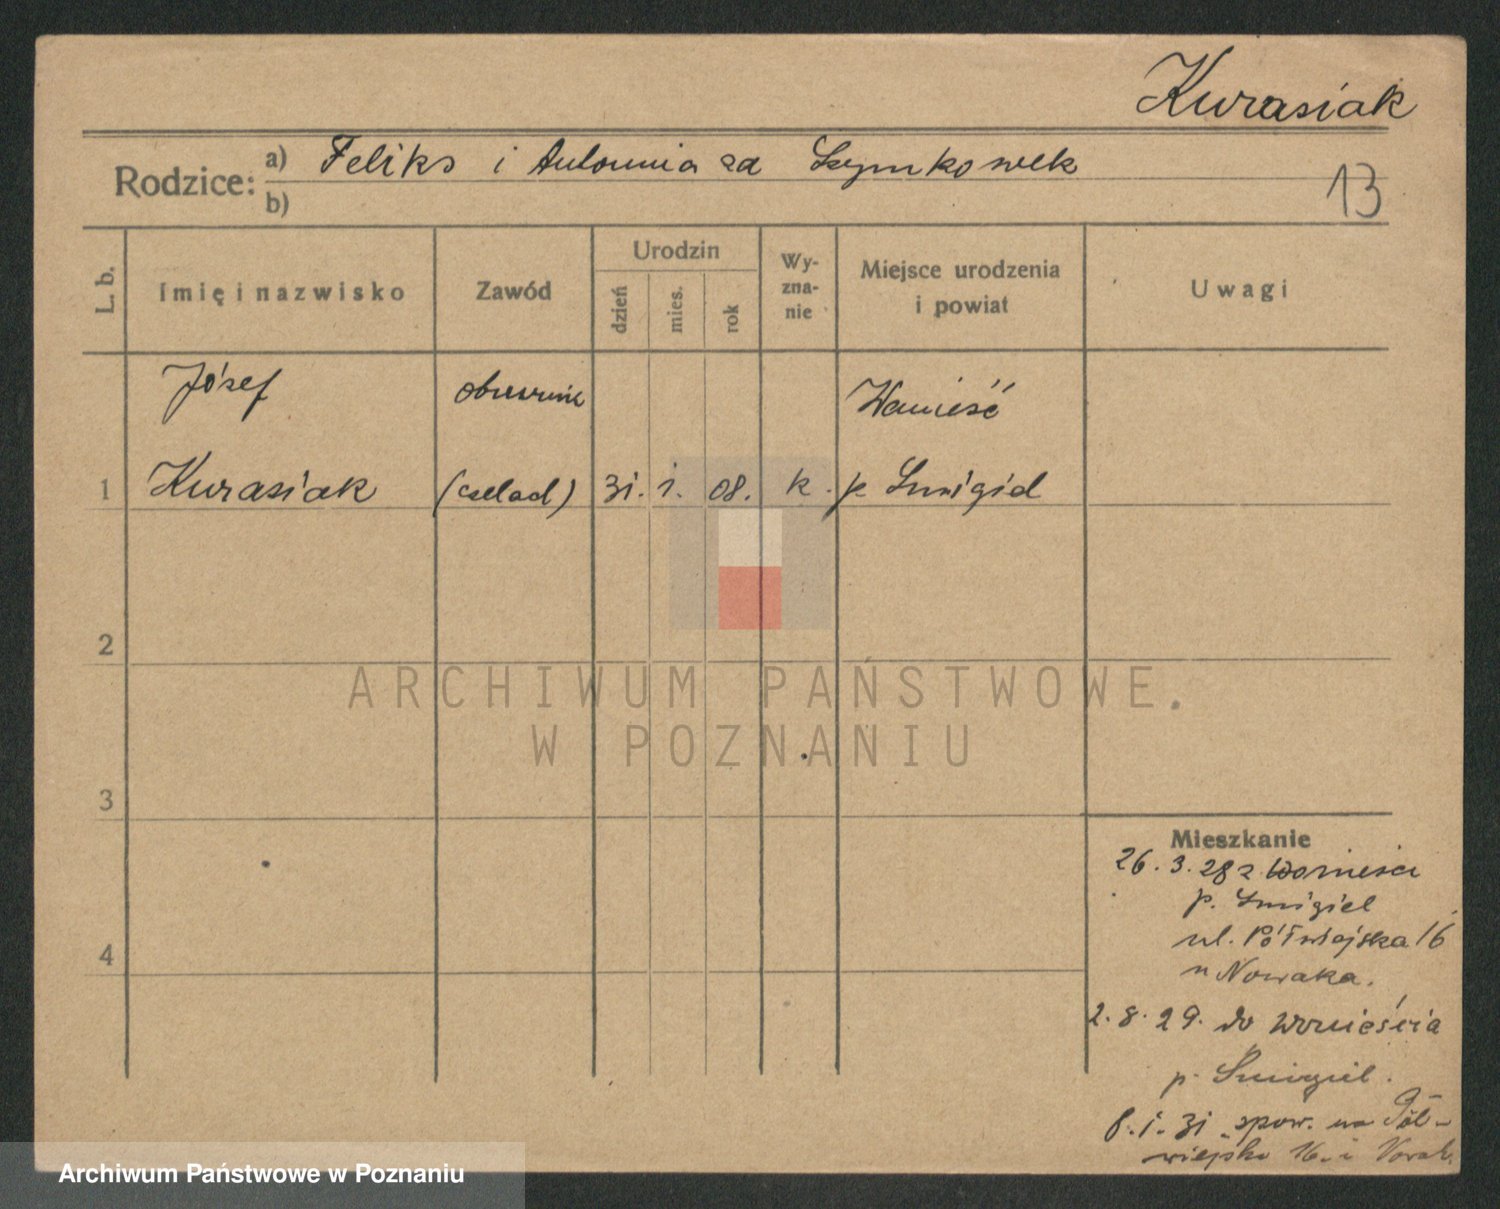 Kurasiak
Rodzice: a) Feliks i Antonina za Szymkowiak
b)
13
L. b.
Imię i nazwisko
Zawód
Urodzin
dzień
mies.
rok
Wy-
zna-
nie
Miejsce urodzenia
i powiat
Uwagi
Józef
Wonieść
1 Kurasiak (czelad) 31. 1. 08. k. p. Śmigiel
2
3
4
Mieszkanie
26. 3. 28 z Wonieścia
p. Śmigiel
ul. Półwiejska 16
u Nowaka.
2. 8. 29. do Wonieścia
p. Śmigiel.
8. 1. 31 spow. na Pół-
wiejska 16. u Nowak.
ARCHIWUM PAŃSTWOWE
W POZNANIU
Archiwum Państwowe w Poznaniu